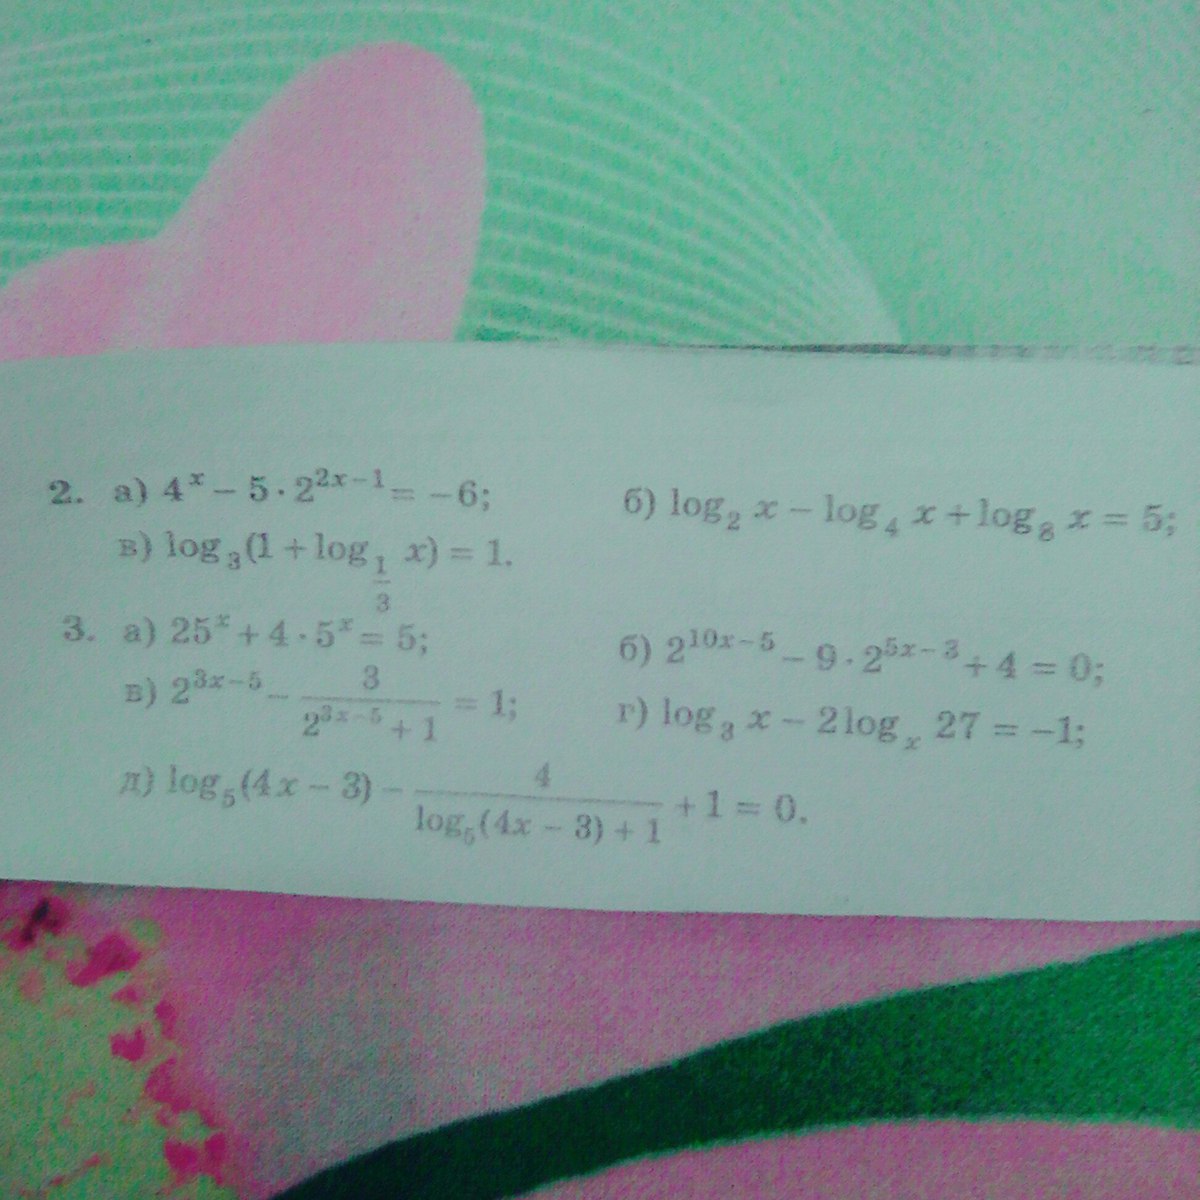 2. а) 4^x − 5 · 2^{2x−1} = −6; б) log_2 x − log_4 x + log_8 x = 5;
в) log_3(1 + log_{1/3} x) = 1.
3. а) 25^x + 4 · 5^x = 5; б) 2^{10x−5} − 9 · 2^{5x−3} + 4 = 0;
в) 2^{3x−5} − 3/(2^{3x−5} + 1) = 1; г) log_3 x − 2 log_x 27 = −1;
д) log_5(4x − 3) − 4/(log_5(4x − 3) + 1) + 1 = 0.